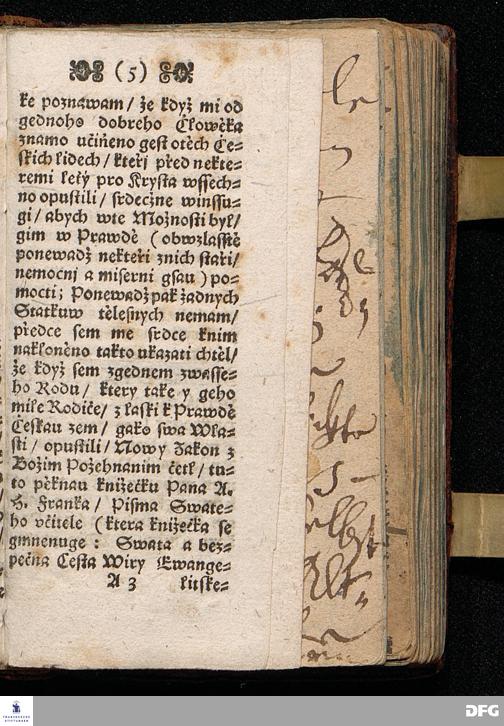 (5)
ke poznawam / že když mi od
gednoho dobreho Člowěka
znamo učiňeno gest otěch Če-
skich lidech / kteřj před nekte-
remi letý pro Krysta wssech-
no opustili / srdečzne winssu-
gi / abych wte Možnosti byl /
gim w Prawdě (obwzlasstě
ponewadž nekteři znich stařj /
nemocnj a miserni gsau) po-
mocti; Ponewadž pak žadnych
Statkuw tělesnych nemam /
předce sem me srdce knim
nakloněno takto ukazati chtěl /
že když sem zgednem zwasse-
ho Rodu / ktery take y geho
mile Rodiče / z laski k Prawdě
Českau zem / gako swa Wla-
sti / opustili / Nowy Zakon z
Božim Požehnanim četl / tu-
to pěknau knižečku Pana A.
H. Franka / Pisma Swate-
ho včitele (ktera knižečka se
gmnenuge: Swata a bez-
pečna Cesta Wiry Ewange-
A 3 litske-
DFG